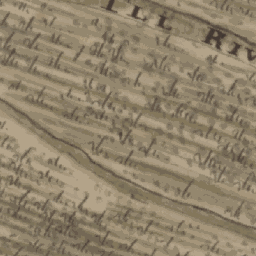 ILL RIV